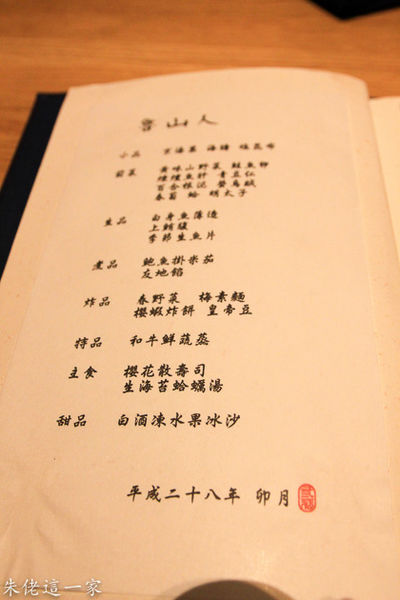 魯山人
小品 京海蕈 海膽 味昆布
前菜 黃味山野菜 鮭魚卵
煙燻魚肝 青豆仁
百合根泥 螢烏賊
春菊 蛤 明太子
生品 白身魚薄造
上鮪腹
季節生魚片
煮品 鮑魚掛米茄
友地餡
炸品 春野菜 梅素麵
櫻蝦炸餅 皇帝豆
特品 和牛鮮蔬蒸
主食 櫻花散壽司
生海苔蛤蠣湯
甜品 白酒凍水果冰沙
平成二十八年 卯月
朱佬這一家